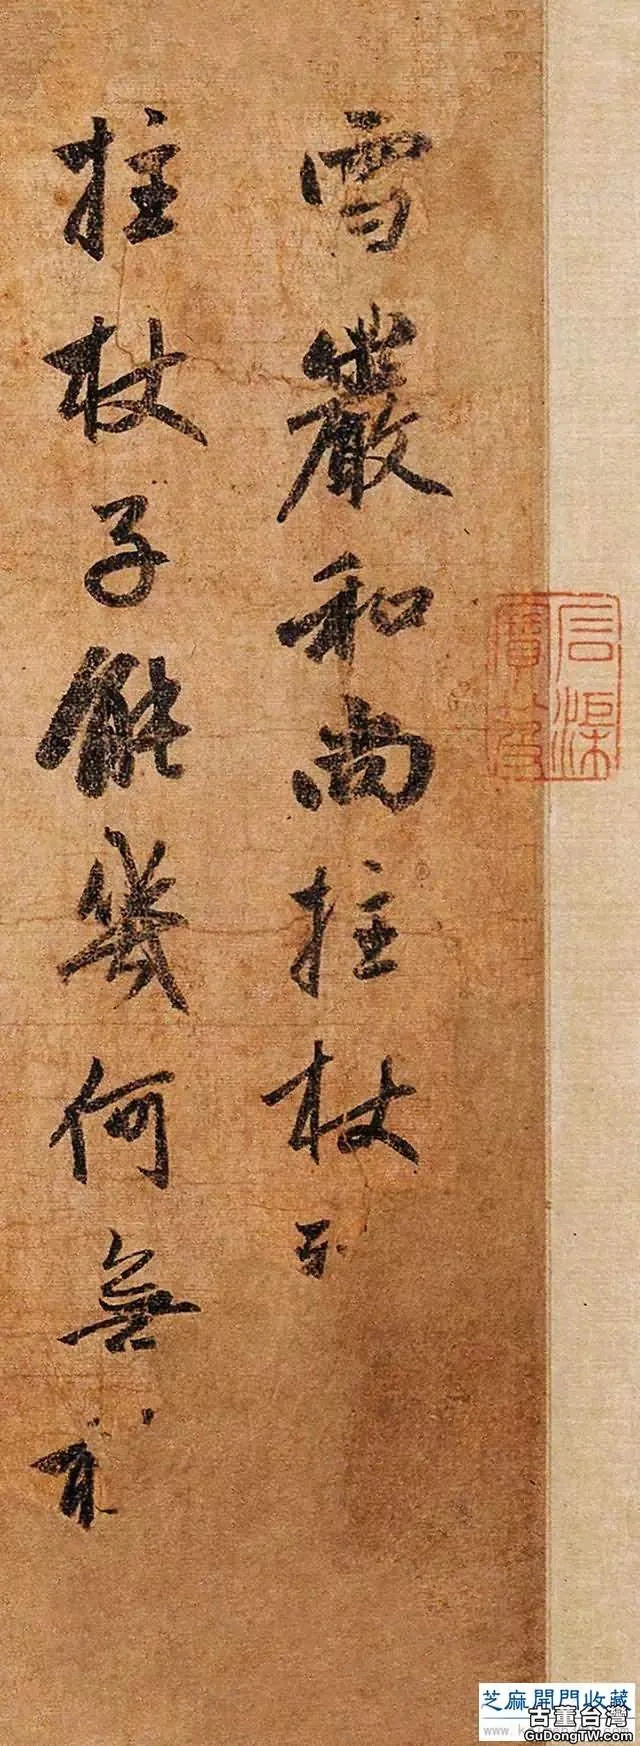 雪巖和尚拄杖
拄杖子能幾何無
芝麻開門收藏
古董台灣
GuDongTW.com